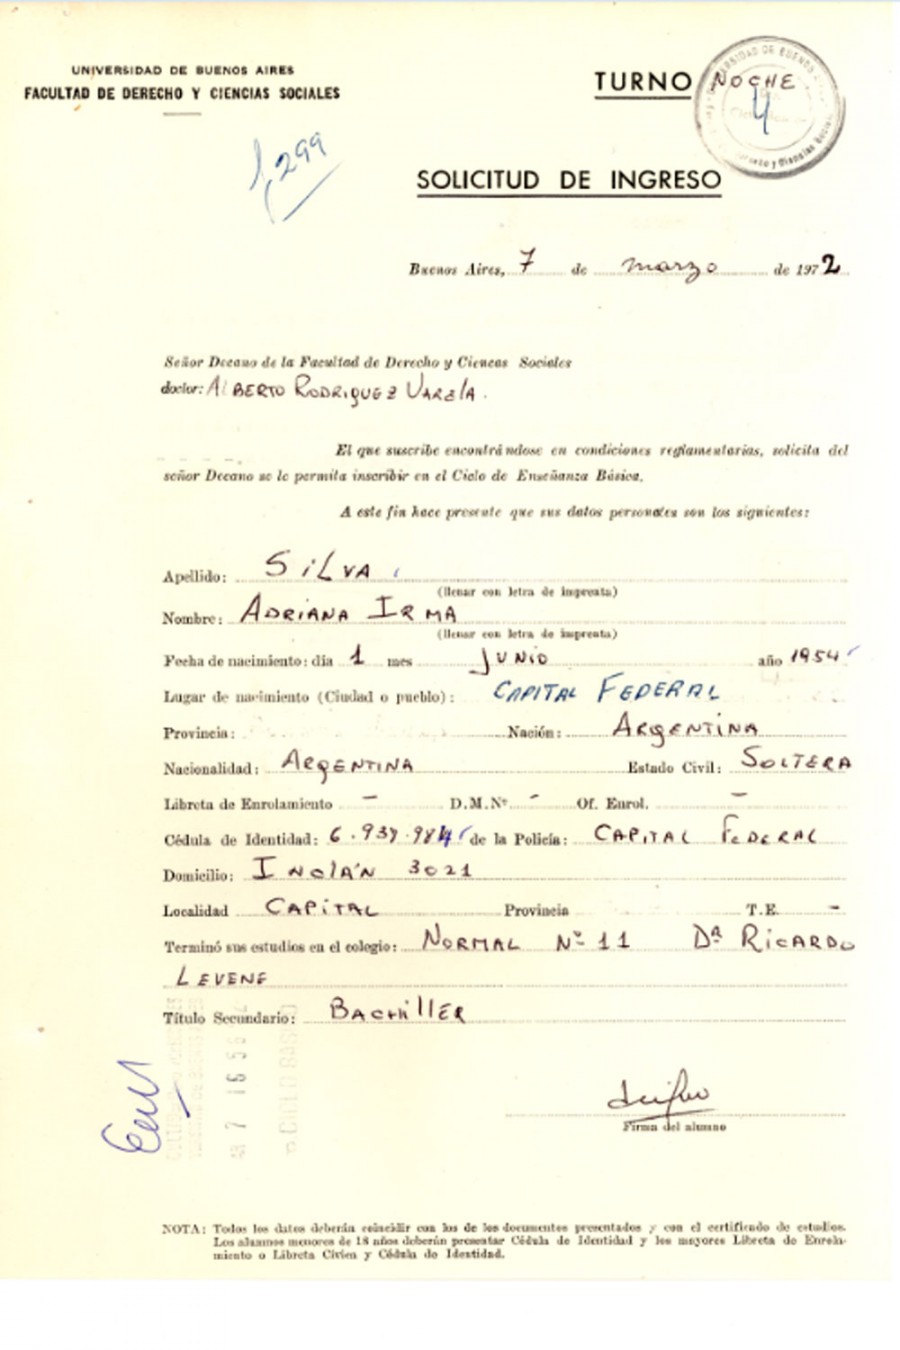 UNIVERSIDAD DE BUENOS AIRES
FACULTAD DE DERECHO Y CIENCIAS SOCIALES
TURNO NOCHE
4
1,299
SOLICITUD DE INGRESO
Buenos Aires, 7 de marzo de 1972
Señor Decano de la Facultad de Derecho y Ciencas Sociales
doctor: ALBERTO RODRIGUEZ VARELA.
El que suscribe encontrándose en condiciones reglamentarias, solicita del
señor Decano se le permita inscribir en el Ciclo de Enseñanza Básica.
A este fin hace presente que sus datos personales son los siguientes:
Apellido: SILVA
(llenar con letra de imprenta)
Nombre: ADRIANA IRMA
(llenar con letra de imprenta)
Fecha de nacimiento: día 1 mes JUNIO año 1954
Lugar de nacimiento (Ciudad o pueblo): CAPITAL FEDERAL
Provincia: Nación: ARGENTINA
Nacionalidad: ARGENTINA Estado Civil: SOLTERA
Libreta de Enrolamiento - D.M.Nº - Of. Enrol. -
Cédula de Identidad: 6.939.984 de la Policía: CAPITAL FEDERAL
Domicilio: INCLÁN 3021
Localidad CAPITAL Provincia T.E. -
Terminó sus estudios en el colegio: NORMAL Nº 11 Dr. RICARDO
LEVENE
Título Secundario: BACHILLER
Firma del alumno
NOTA: Todos los datos deberán coincidir con los de los documentos presentados y con el certificado de estudios.
Los alumnos menores de 18 años deberán presentar Cédula de Identidad y los mayores Libreta de Enrola-
miento o Libreta Cívica y Cédula de Identidad.